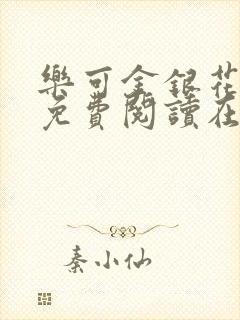 樂可金銀花
免費閱讀在
秦小仙